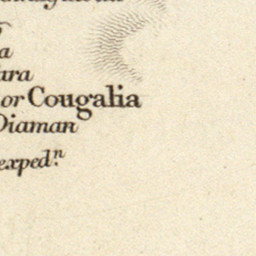 a
ara
or Cougalia
Diaman
exped.n